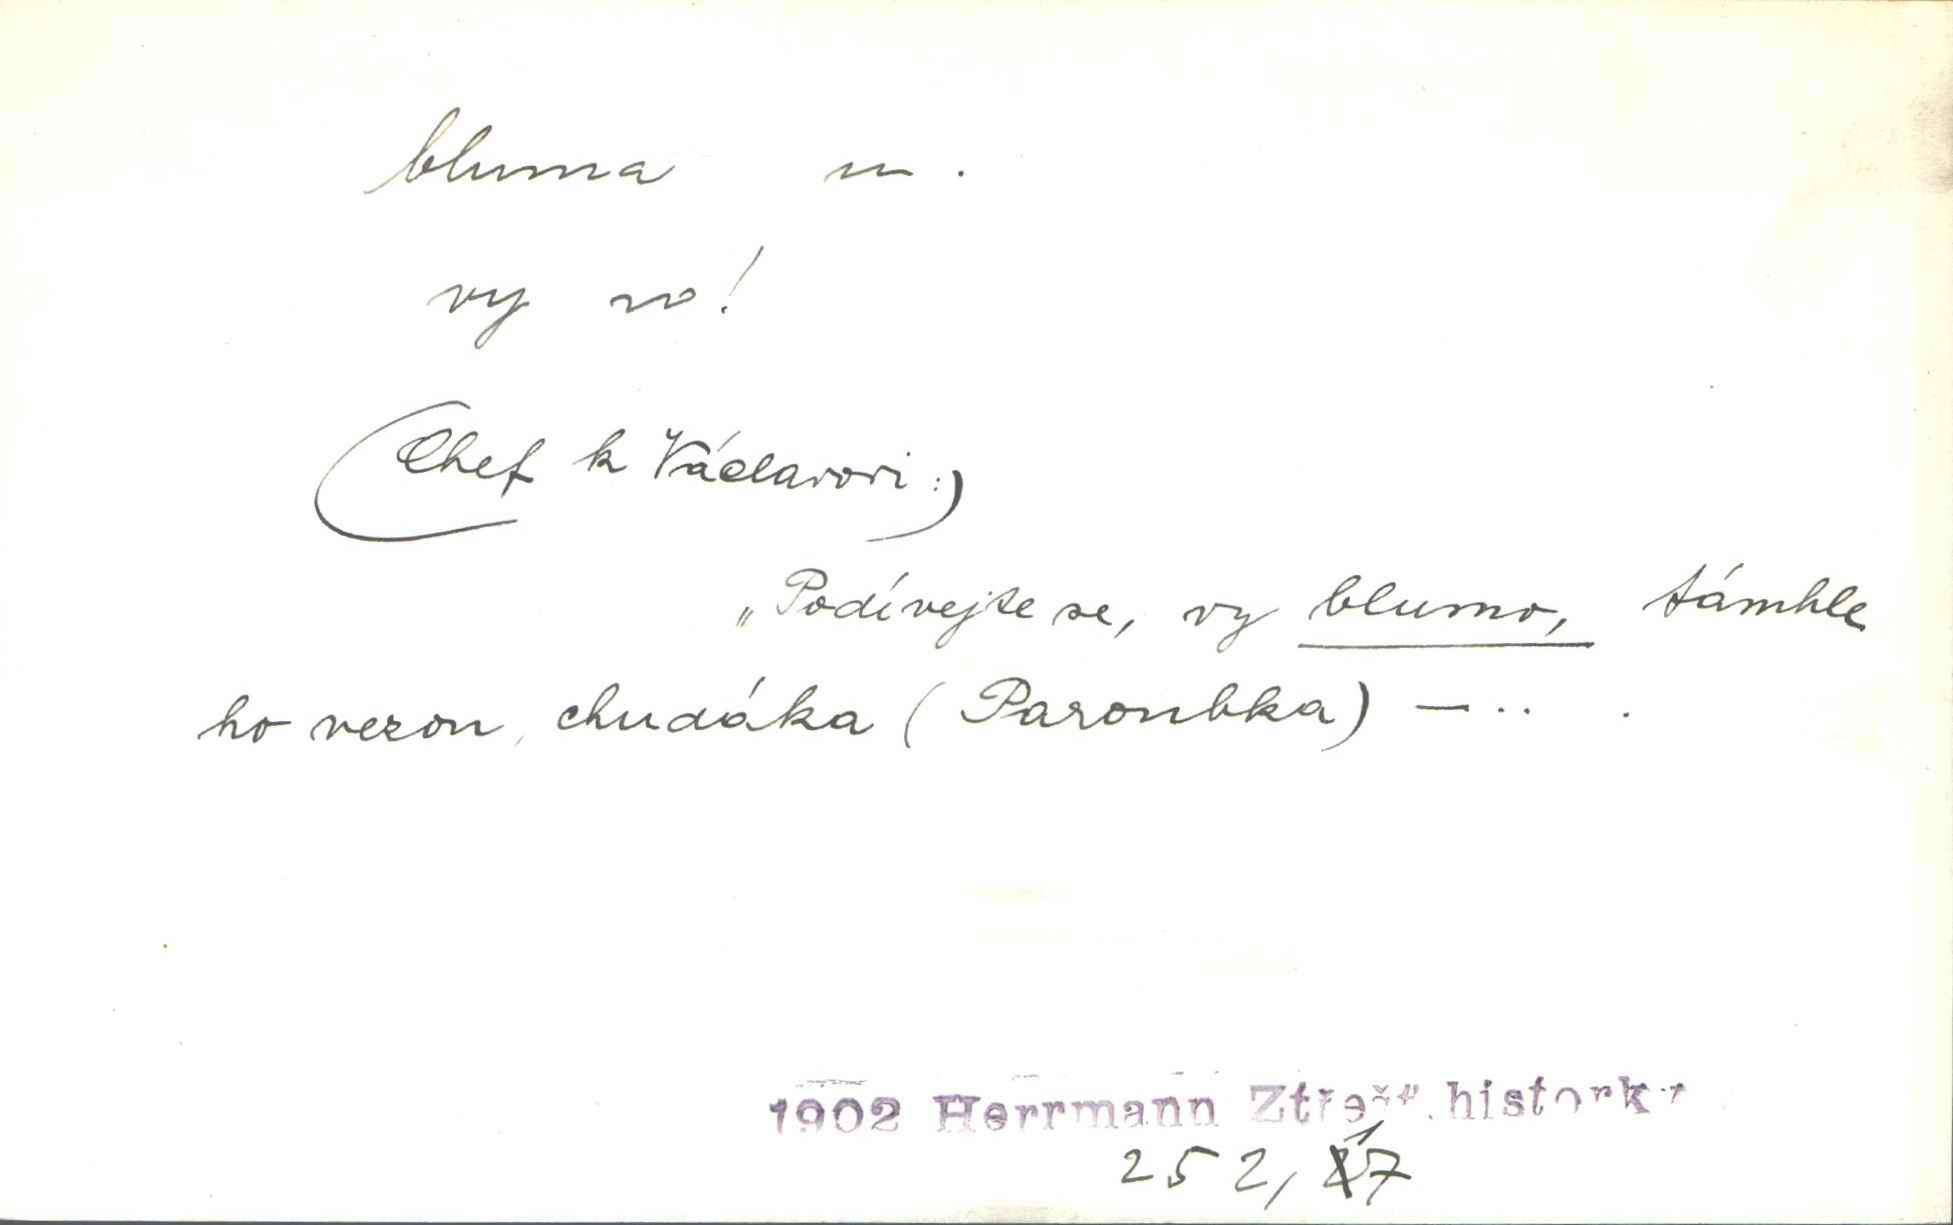 bluma m.
vy ~o!
(Chef k Václavovi:)
„Podívejte se, vy blumo, támhle
ho vezou, chudáka (Paroubka) — ..
1902 Herrmann Ztřešt. historky
252, 17